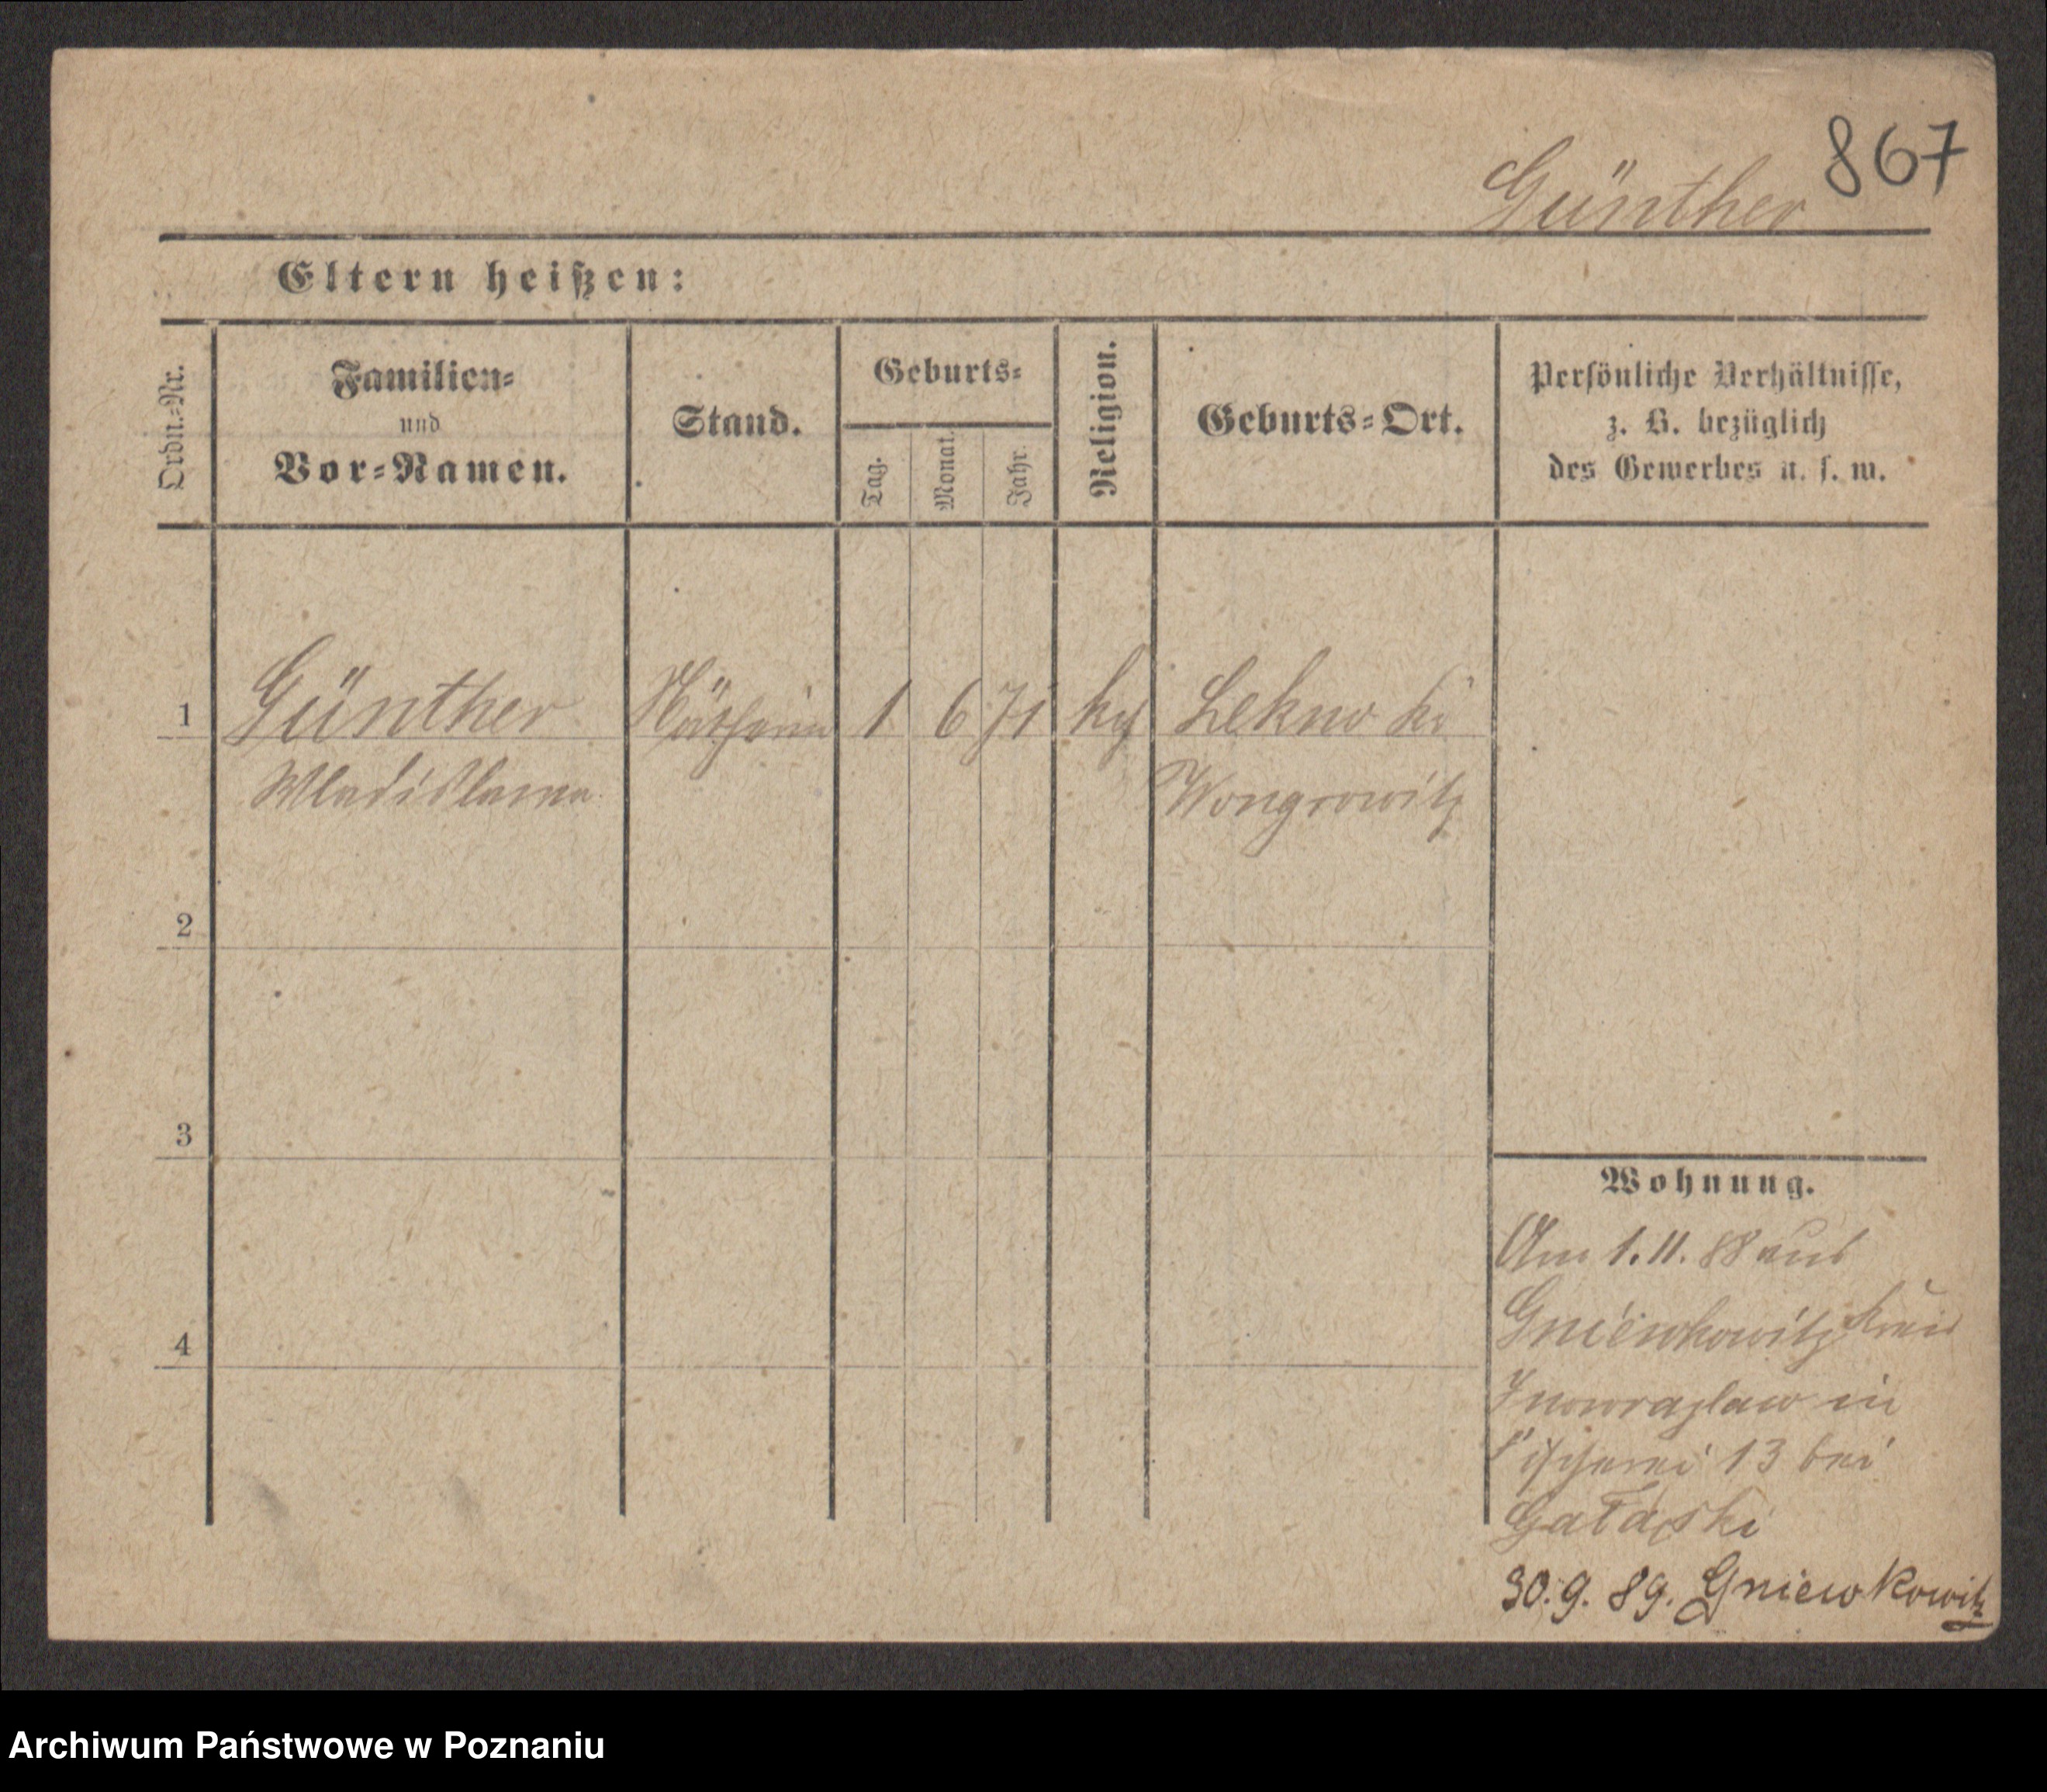 867
Günther
Eltern heißen:
Ordn.-Nr.
Familien-
und
Vor-Namen.
Stand.
Geburts-
Tag.
Monat.
Jahr.
Religion.
Geburts-Ort.
Persönliche Verhältnisse,
z. B. bezüglich
des Gewerbes u. s. w.
1 Günther Nätherin 1 6 71 kath Lekno Kr
Wladislawa Wongrowitz
2
3
4
Wohnung.
Am 1. 11. 88 aus
Gniewkowitz Kreis
Inowrazlaw in
Fischerei 13 bei
30. 9. 89. Gniewkowitz
Archiwum Państwowe w Poznaniu